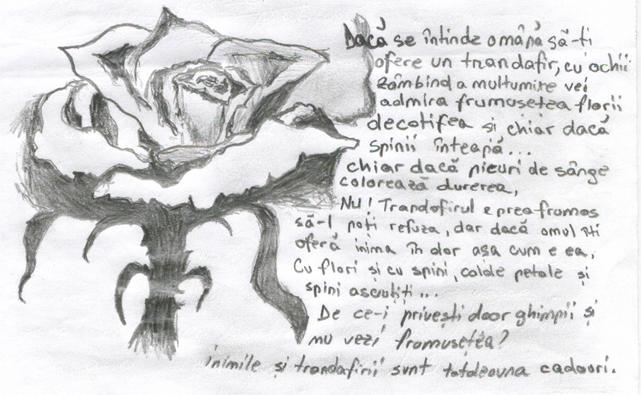 Dacă se întinde o mână să-ți
ofere un trandafir, cu ochii
zâmbind a multumire vei
admira frumusetea florii
decotifea si chiar dacă
spinii înteapă...
chiar dacă picuri de sânge
colorează durerea,
NU! Trandafirul e prea frumos
să-l poți refuza, dar dacă omul iti
oferă inima în dar asa cum e ea,
Cu flori și cu spini, calde petale și
spini ascutiti...
De ce-i privești doar ghimpii și
nu vezi frumusețea?
inimile și trandafirii sunt totdeauna cadouri.